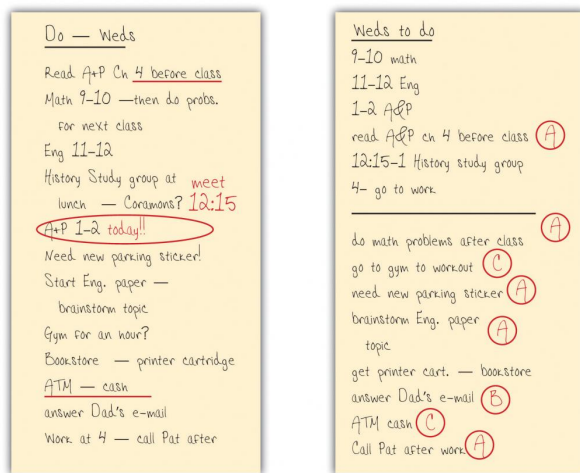 Do — Weds
Read A+P Ch 4 before class
Math 9–10 — then do probs.
for next class
Eng 11–12
History Study group at meet
lunch — Coramons? 12:15
A+P 1–2 today!!
Need new parking sticker!
Start Eng. paper —
brainstorm topic
Gym for an hour?
Bookstore — printer cartridge
ATM — cash
answer Dad's e-mail
Work at 4 — call Pat after
Weds to do
9–10 math
11–12 Eng
1–2 A&P
read A&P ch 4 before class A
12:15–1 History study group
4– go to work
do math problems after class A
go to gym to workout C
need new parking sticker A
brainstorm Eng. paper A
topic
get printer cart. — bookstore
answer Dad's e-mail B
ATM cash C
Call Pat after work A